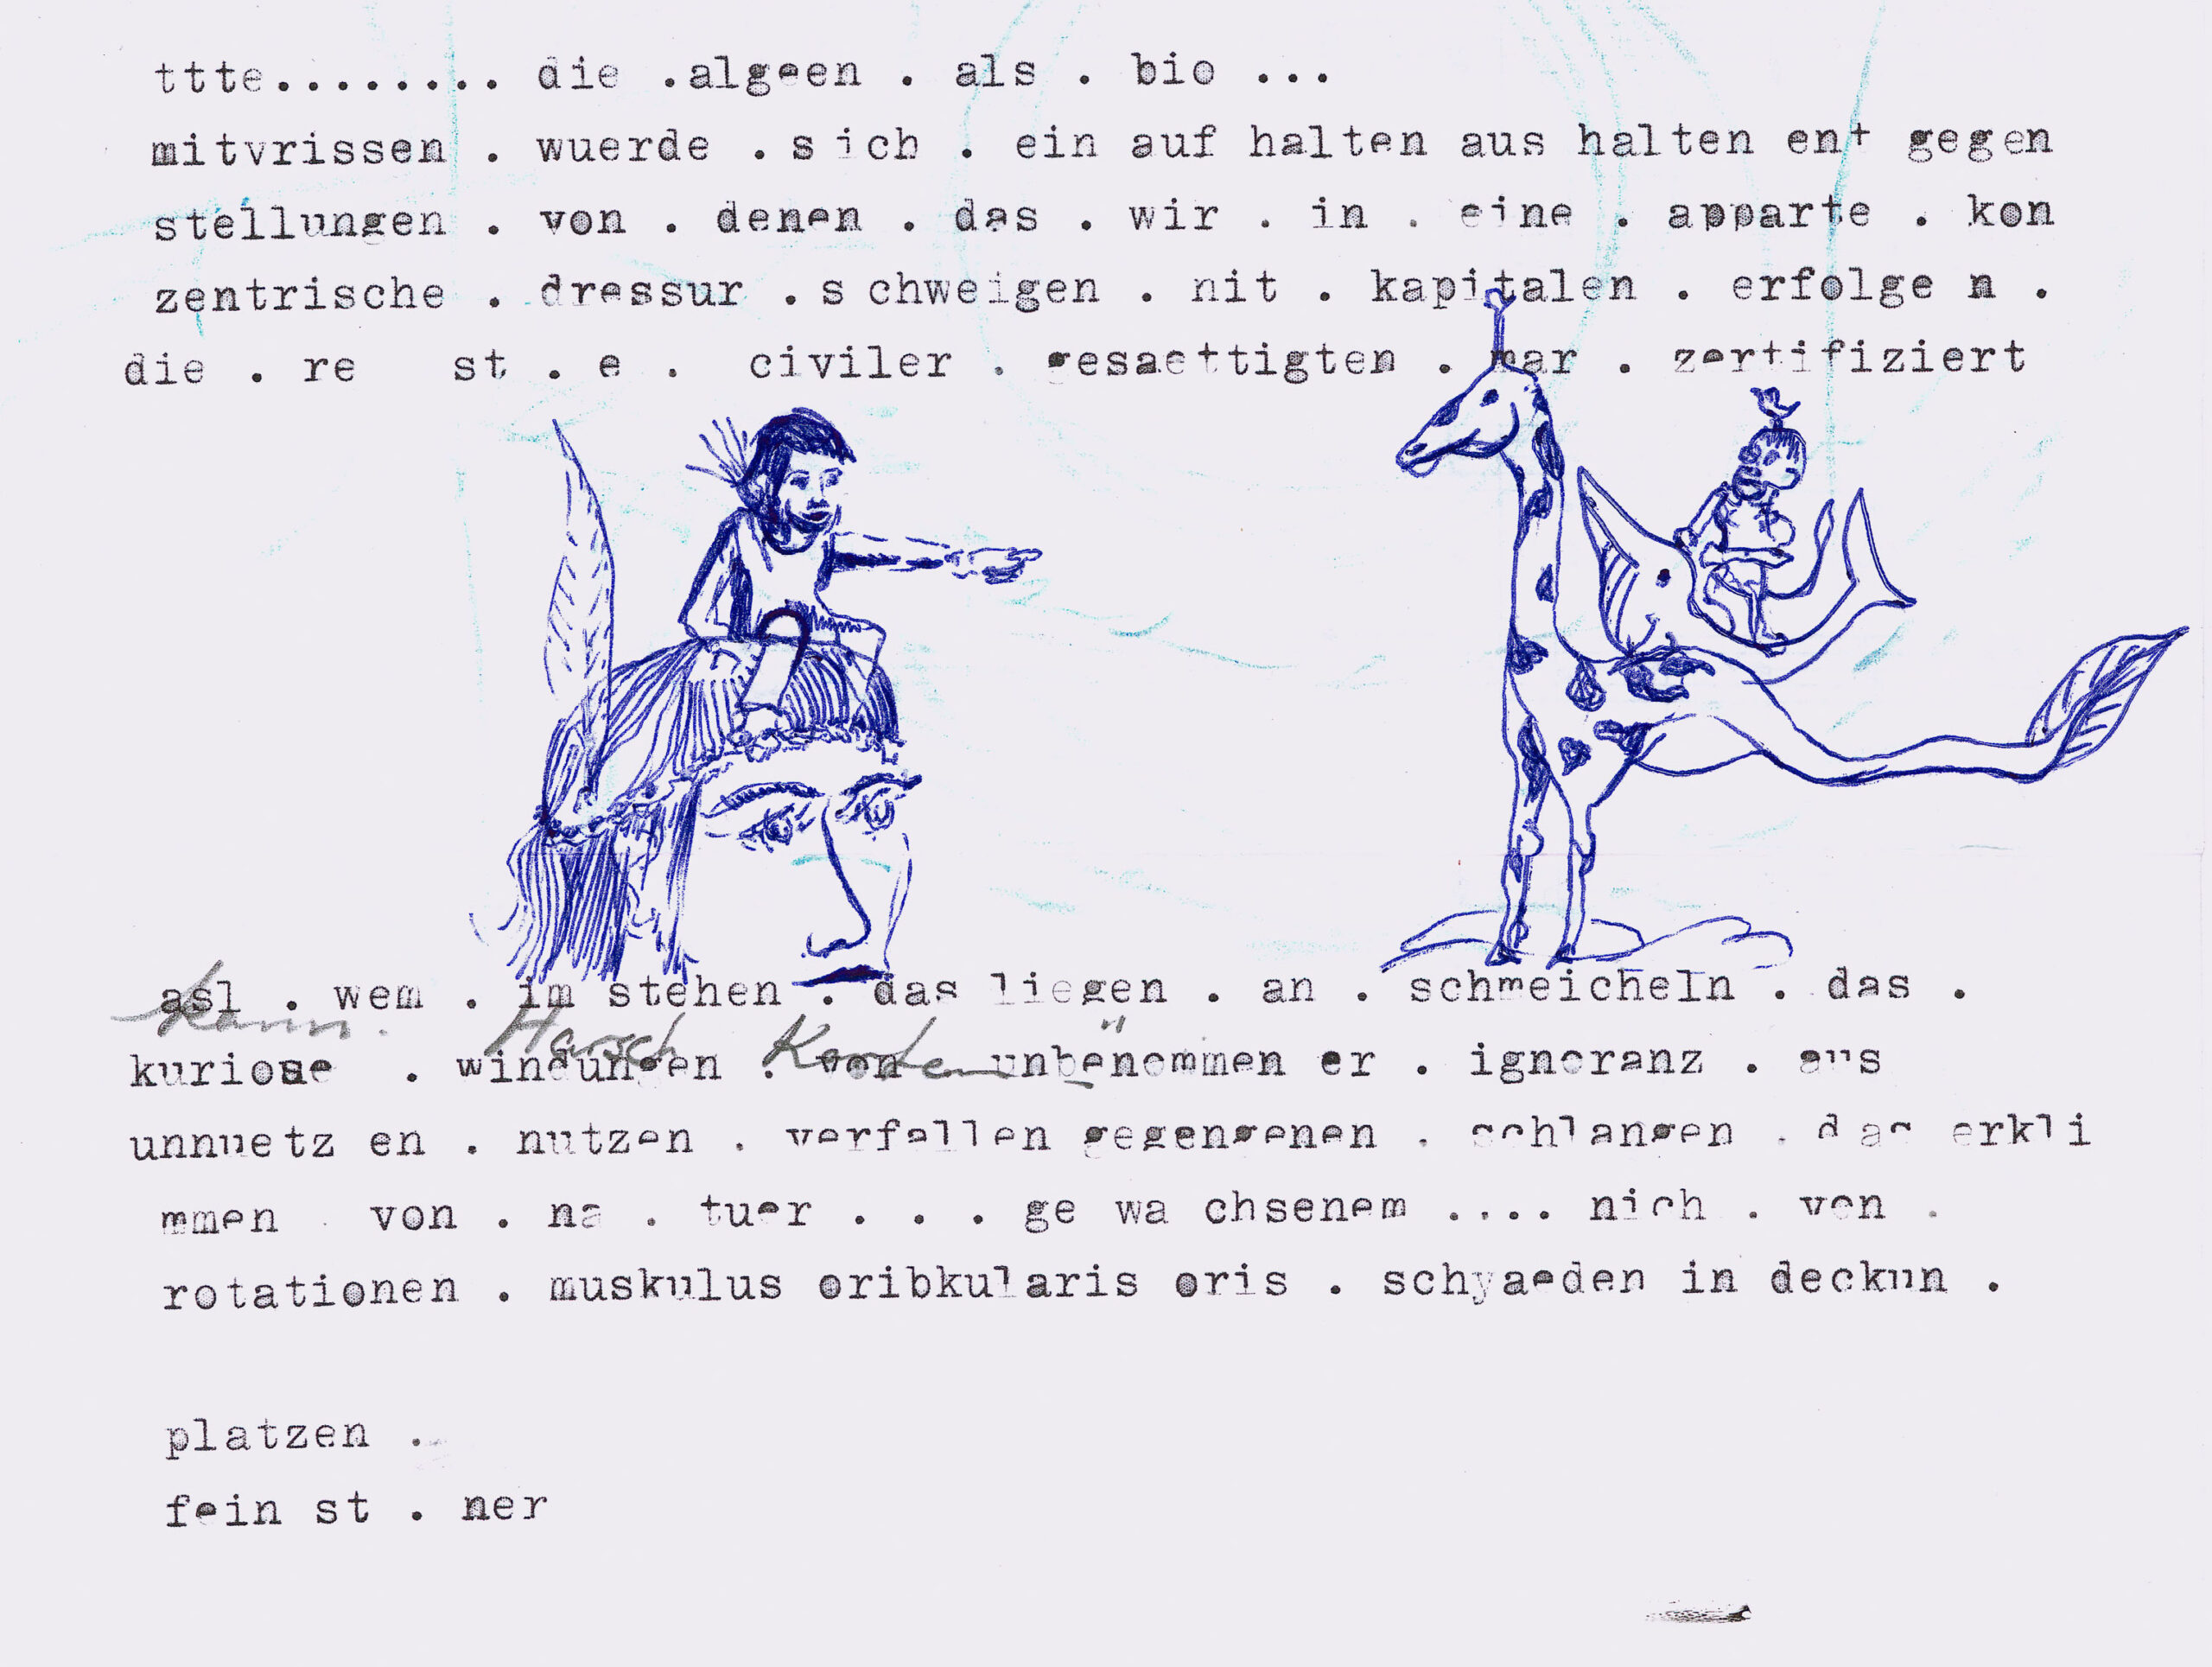 ttte........ die .algeen . als . bio ...
mitvrissen . wuerde . sich . ein auf halten aus halten ent gegen
stellungen . von . denen . das . wir . in . eine . apparte . kon
zentrische . dressur . s chweigen . nit . kapitalen . erfolge n .
die . re st . e . civiler . gesaettigten . mar . zertifiziert
asl . wem . im stehen . das liegen . an . schmeicheln . das .
kann. Harsch
kuriose . windungen . von unbenommen er . ignoranz . aus
unnuetz en . nutzen . verfallen gegengenen . schlangen . das erkli
mmen . von . na . tuer . . . ge wa chsenem .... nich . von .
rotationen . muskulus oribkularis oris . schyaeden in deckun .
platzen .
fein st . ner